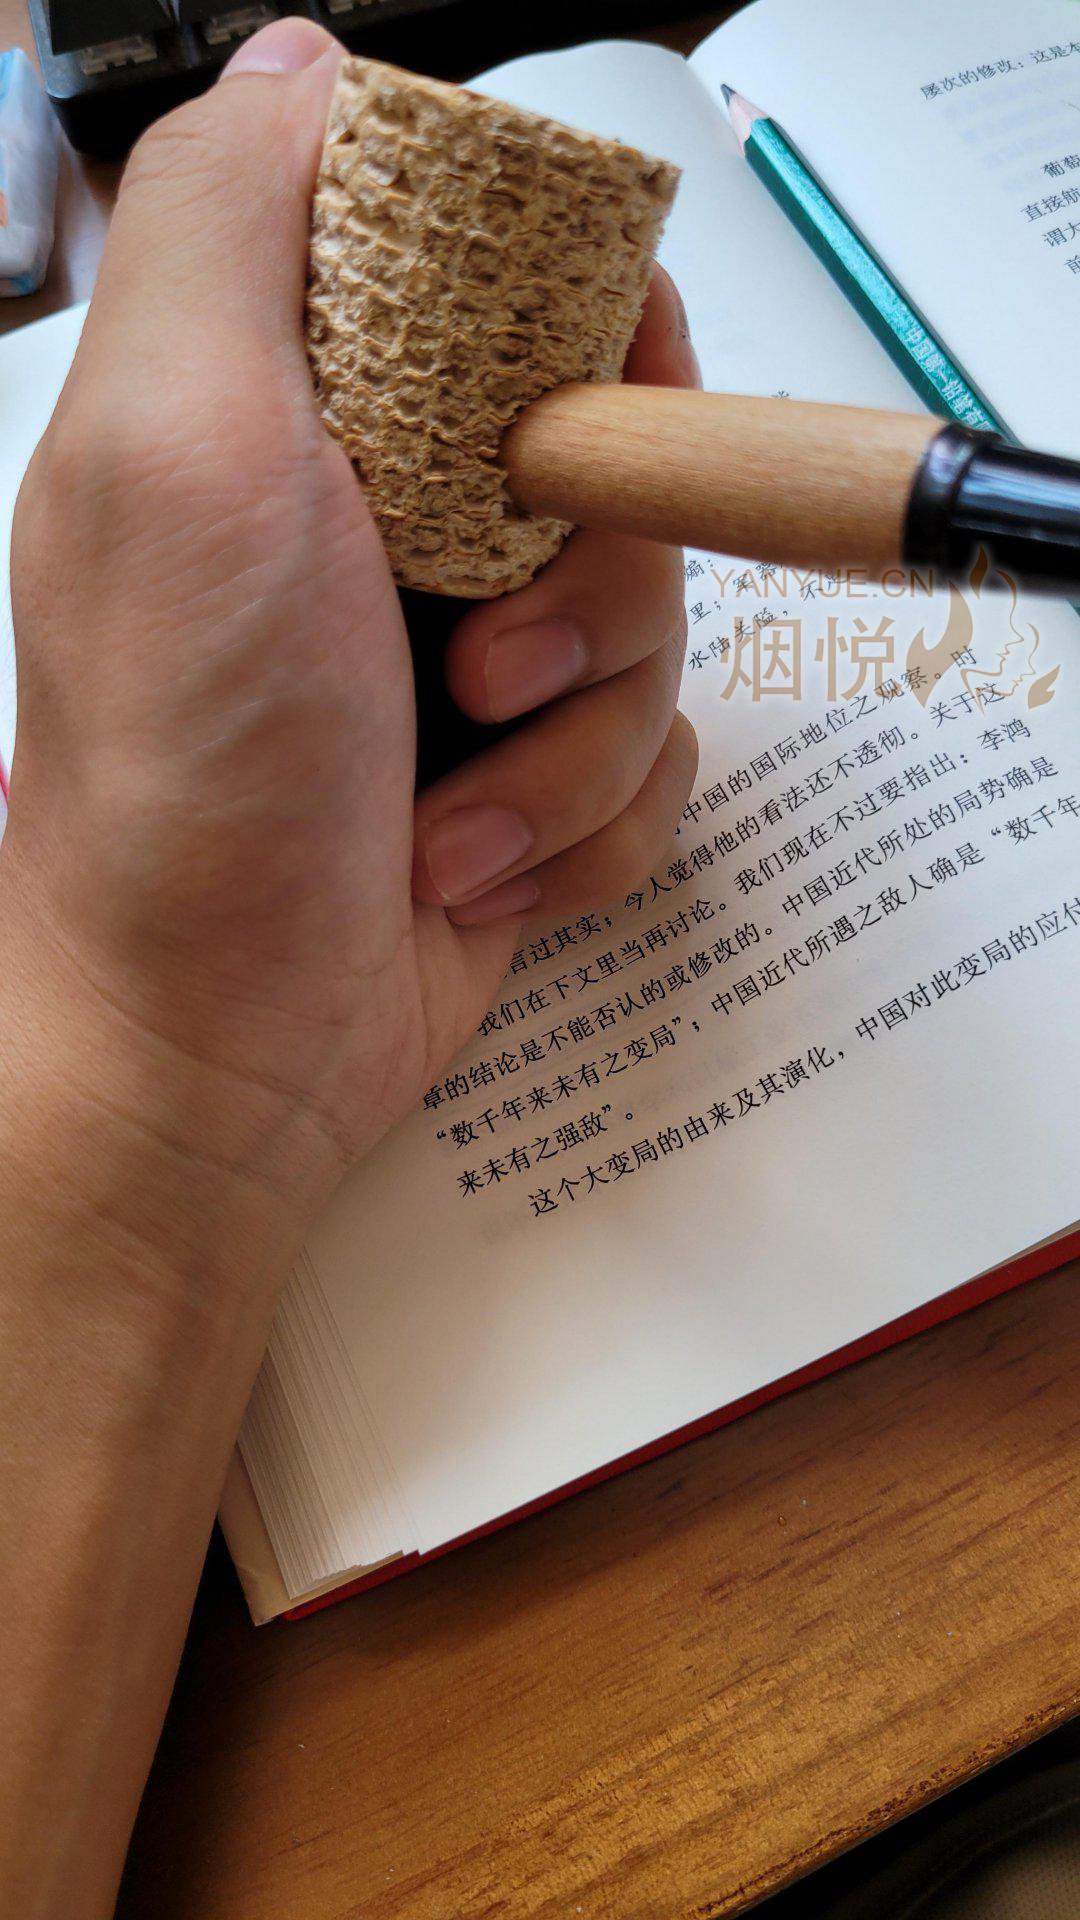 屡次的修改：这是本
葡萄
直接航
谓大
前
中国第一铅笔有
煽：
里；军器
水陆关隘，不
YANYUE.CN
烟悦
中国的国际地位之观察。时
言过其实；今人觉得他的看法还不透彻。关于这
我们在下文里当再讨论。我们现在不过要指出：李鸿
章的结论是不能否认的或修改的。中国近代所处的局势确是
“数千年来未有之变局”；中国近代所遇之敌人确是“数千年
来未有之强敌”。
这个大变局的由来及其演化，中国对此变局的应付